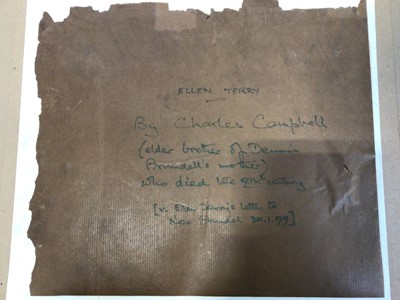 ELLEN TERRY
By Charles Campbell
(elder brother of Dennis
Brundell's mother)
who died late 19th century
[v. Dennis's letter to
30.1.99]